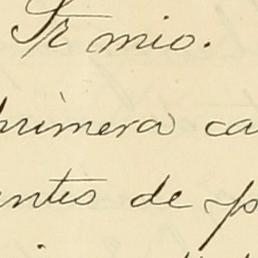 Sr mio.
primera ca
entes de p